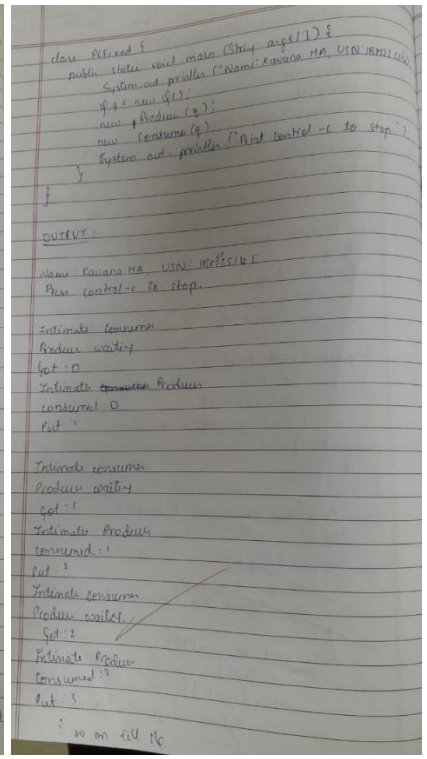 class PCFixed {
public static void main (String args[]) {
System.out println ("Name: Kavana MA, USN:
Q q = new Q();
new Producer (q);
new Consumer (q);
System out println ("Print control -c to stop")
}
}
OUTPUT:
Name: Kavana MA, USN
Press control-c to stop.
Intimate consumer
Producer waiting
Got : 0
Intimate Producer
consumed : 0
Put : 1
Intimate consumer
Producer waiting
Got : 1
Intimate Producer
consumed : 1
Put : 2
Intimate consumer
Producer waiting
Got : 2
Intimate Producer
Consumed : 2
Put : 3
: so on till 16